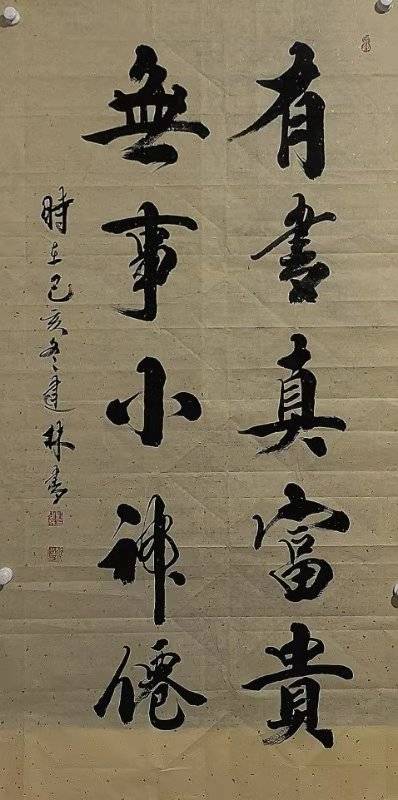 有書真富貴
無事小神僊
時在己亥冬建林書